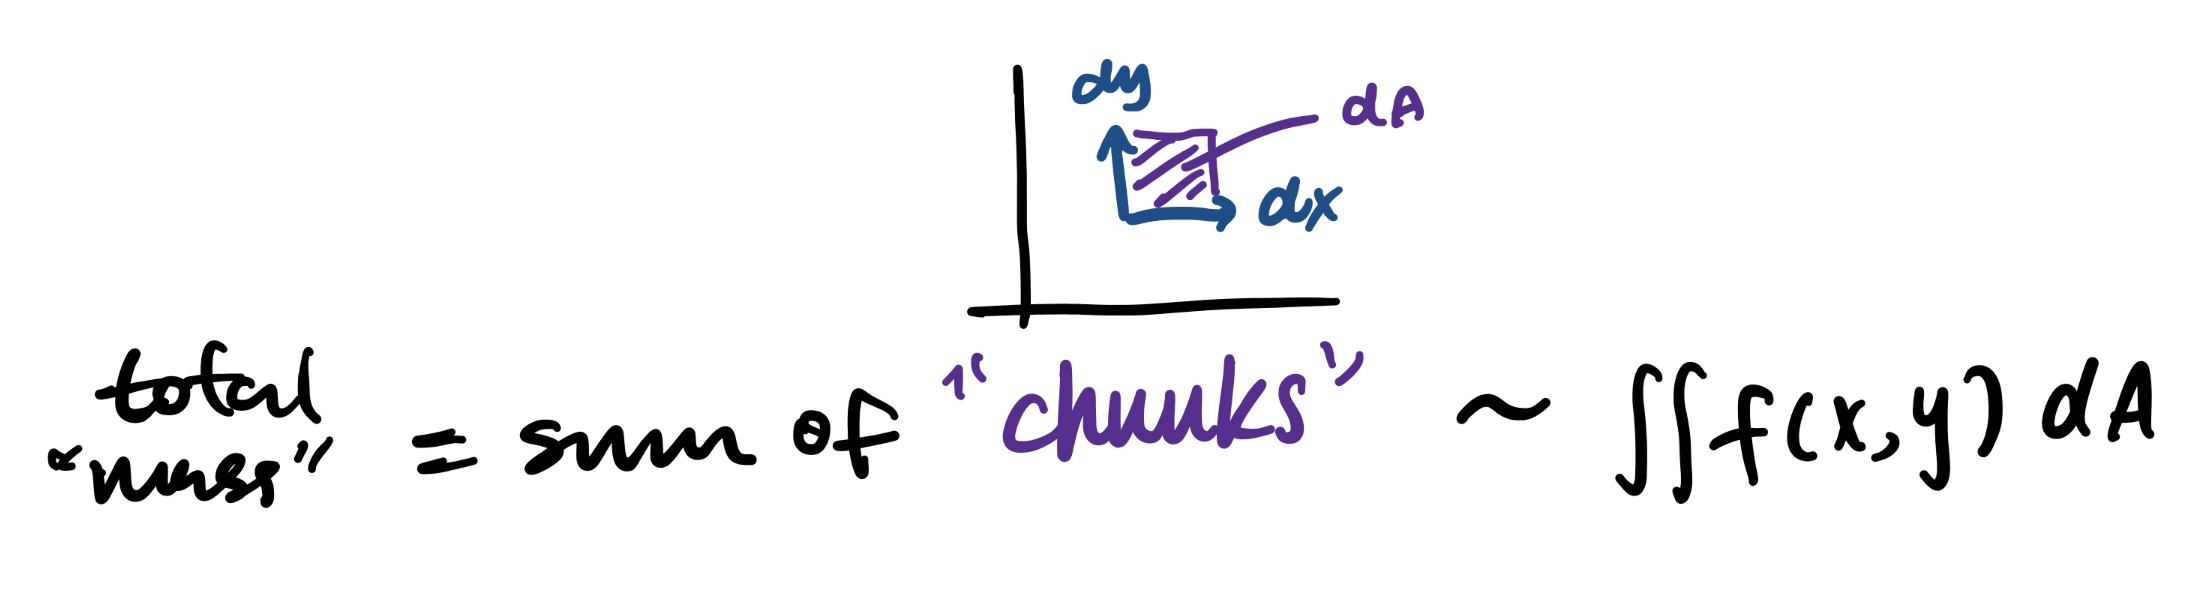 dy
dA
dx
total "mass" = sum of "chunks" ~ ∬ f(x,y) dA